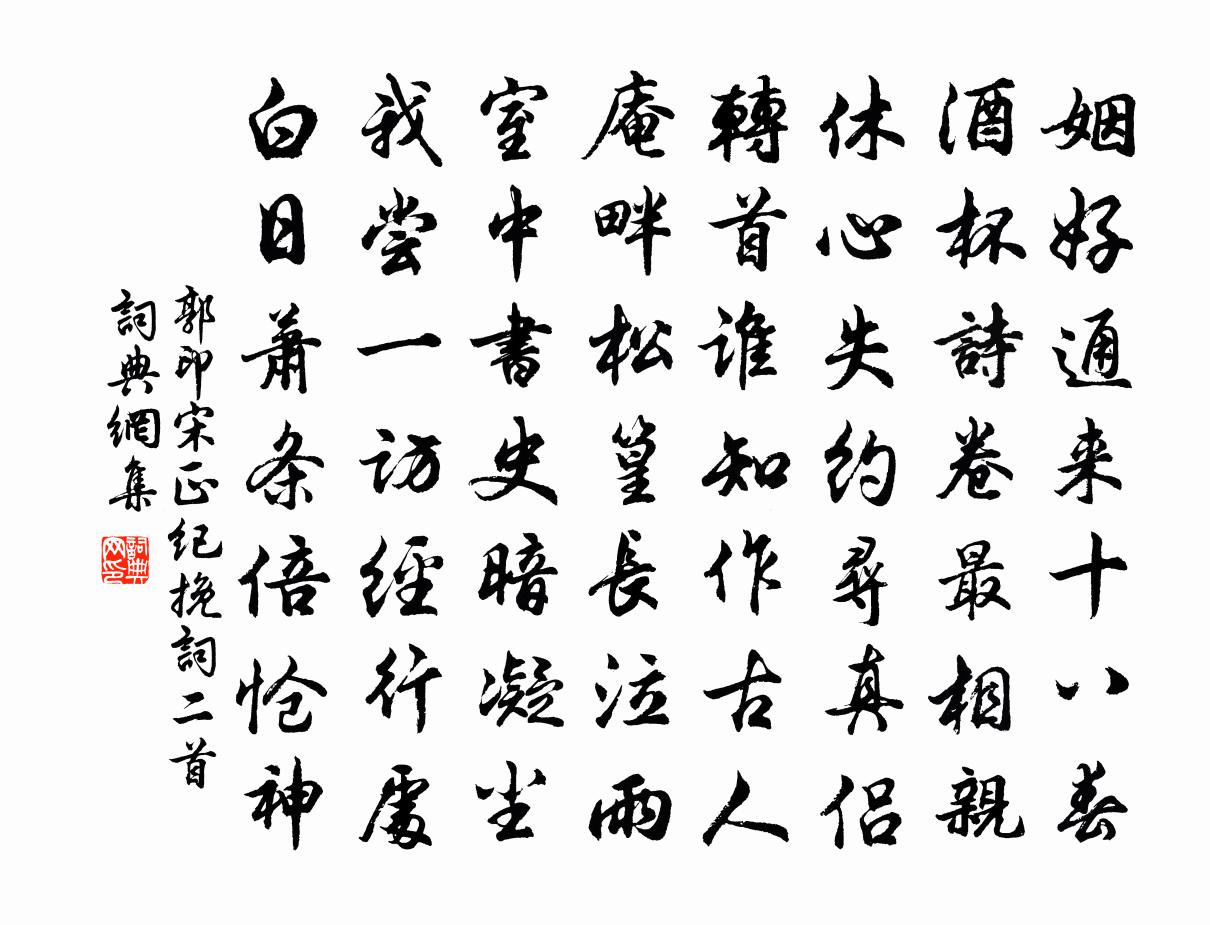 姻好通来十八春
酒杯詩卷最相親
休心失約尋真侶
轉首誰知作古人
庵畔松篁長泣雨
室中書史暗凝尘
我尝一訪經行處
白日蕭条倍怆神
郭印宋正纪挽詞二首
詞典網集
詞典网印